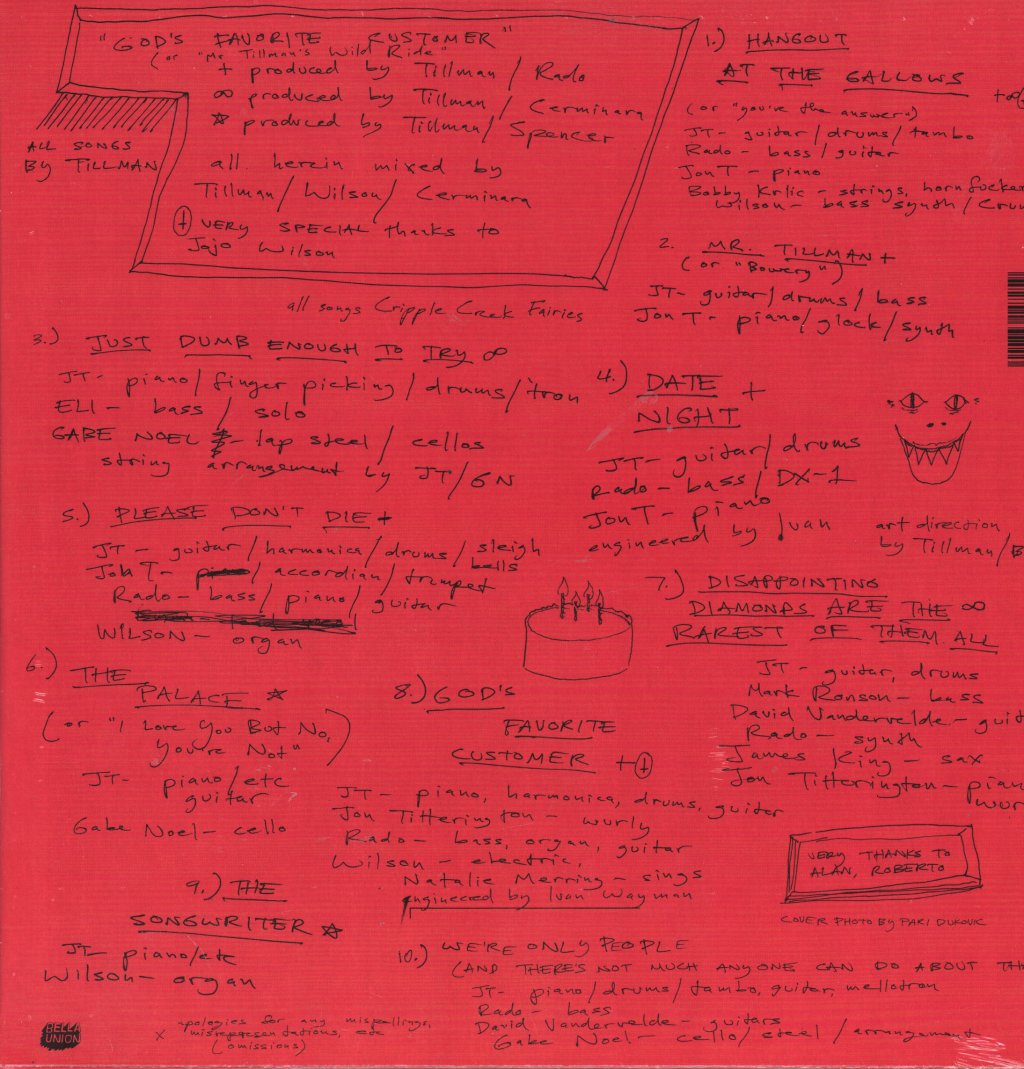 "GOD'S FAVORITE CUSTOMER"
(or "Mr. Tillman's Wild Ride"
+ produced by Tillman / Rado
∞ produced by Tillman / Cerminara
☆ produced by Tillman / Spencer
all herein mixed by
Tillman / Wilson / Cerminara
VERY SPECIAL thanks to
Jojo Wilson
ALL SONGS
BY TILLMAN
all songs Cripple Creek Fairies
1.) HANGOUT
AT THE GALLOWS
(or "you're the answer")
JT- guitar/drums/tambo
Rado - bass/guitar
Jon T - piano
Bobby Krlic - strings, horn
Wilson - bass synth/
2. MR. TILLMAN +
(or "Bowery")
JT- guitar/drums/bass
Jon T - piano/glock/synth
3.) JUST DUMB ENOUGH TO TRY ∞
JT- piano/finger picking/drums/'tron
ELI - bass / solo
GABE NOEL - lap steel / cellos
string arrangement by JT/GN
4.) DATE +
NIGHT
JT- guitar/drums
Rado - bass/DX-1
Jon T - piano
engineered by Ivan
art direction
by Tillman/
5.) PLEASE DON'T DIE +
JT - guitar/harmonica/drums/sleigh
bells
Jon T - / accordian/trumpet
Rado - bass/piano/guitar
WILSON - organ
6.) THE
PALACE ☆
(or "I Love You But No,
You're Not")
JT- piano/etc
guitar
Gabe Noel - cello
7.) DISAPPOINTING
DIAMONDS ARE THE ∞
RAREST OF THEM ALL
JT - guitar, drums
Mark Ronson - bass
David Vandervelde - guit
Rado - synth
James King - sax
Jon Titterington - pian
wur
8.) GOD'S
FAVORITE
CUSTOMER +
JT - piano, harmonica, drums, guitar
Jon Titterington - wurly
Rado - bass, organ, guitar
Wilson - electric,
Natalie Merring - sings
engineered by Ivan Wayman
VERY THANKS TO
ALAN, ROBERTO
COVER PHOTO BY PARI DUKOVIC
9.) THE
SONGWRITER ☆
JT piano/etc
Wilson - organ
10.) WE'RE ONLY PEOPLE
(AND THERE'S NOT MUCH ANYONE CAN DO ABOUT TH
JT- piano/drums/tambo, guitar, mellotron
Rado - bass
David Vandervelde - guitars
Gabe Noel - cello/steel/arrangement
BELLA
UNION
x apologies for any mispellings,
misrepresentations, etc
(omissions)